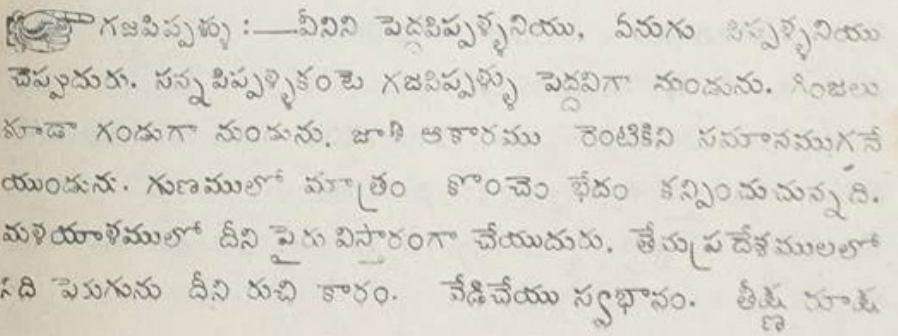 గజపిప్పళ్ళు :— వీనిని పెద్దపిప్పళ్ళనియు, ఏనుగు పిప్పళ్ళనియు
చెప్పుదురు. సన్న పిప్పళ్ళికంటె గజపిప్పళ్ళు పెద్దవిగా నుండును. గింజలు
కూడా గండుగా నుండును. జాతి ఆకారము రెంటికిని సమానముగనే
యుండును. గుణములో మాత్రం కొంచెం భేదం కన్పించుచున్నది.
మళయాళములో దీని పైరు విస్తారంగా చేయుదురు. తేమప్రదేశములలో
నిది పెరుగును దీని రుచి కారం. వేడిచేయు స్వభావం. తీక్ష్ణ రూక్ష